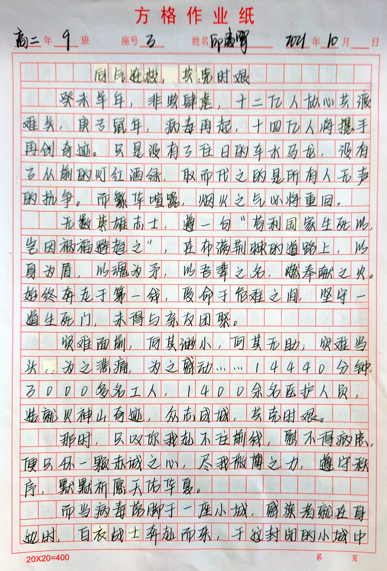 方格作业纸
高二年 9 班 座号 3 姓名 2021年10月 日
同气连枝，共克时艰
癸未羊年，非典肆虐，十二亿人松心共渡
难关，庚子鼠年，病毒再起，十四亿人将携手
再创奇迹。只是没有了往日的车水马龙，没有
了从前的灯红酒绿，取而代之的是所有人无声
的抗争。而繁华喧嚣，烟火之气必将重回。
无数英雄志士，道一句“苟利国家生死以，
岂因祸福避趋之”，在布满荆棘的道路上，以
身为盾，以魂为矛，以吾辈之名，燃奉献之火。
始终奔走于第一线，受命于危难之间，坚守一
道生死门，未得与亲友团聚。
灾难面前，何其渺小，何其无助，灾难当
头，为之悲痛，为之感动……14440分钟，
3000多名工人，1400余名医护人员，
造就火神山奇迹，众志成城，共克时艰。
那时，只以你我赴不住前线，献不得病房，
便只仅一颗赤城之心，尽我微薄之力，遵守秩
序，默默祈愿天佑华夏。
而当病毒落脚于一座小城，感染者就在身
边时，白衣战士奔赴而来，于这封闭的小城中
20X20=400 第 页